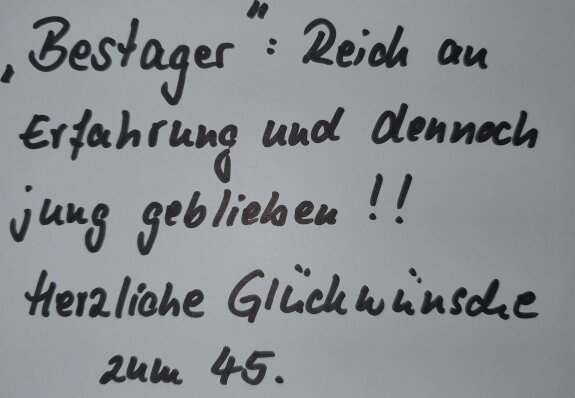 „Bestager": Reich an
Erfahrung und dennoch
jung geblieben !!
Herzliche Glückwünsche
zum 45.